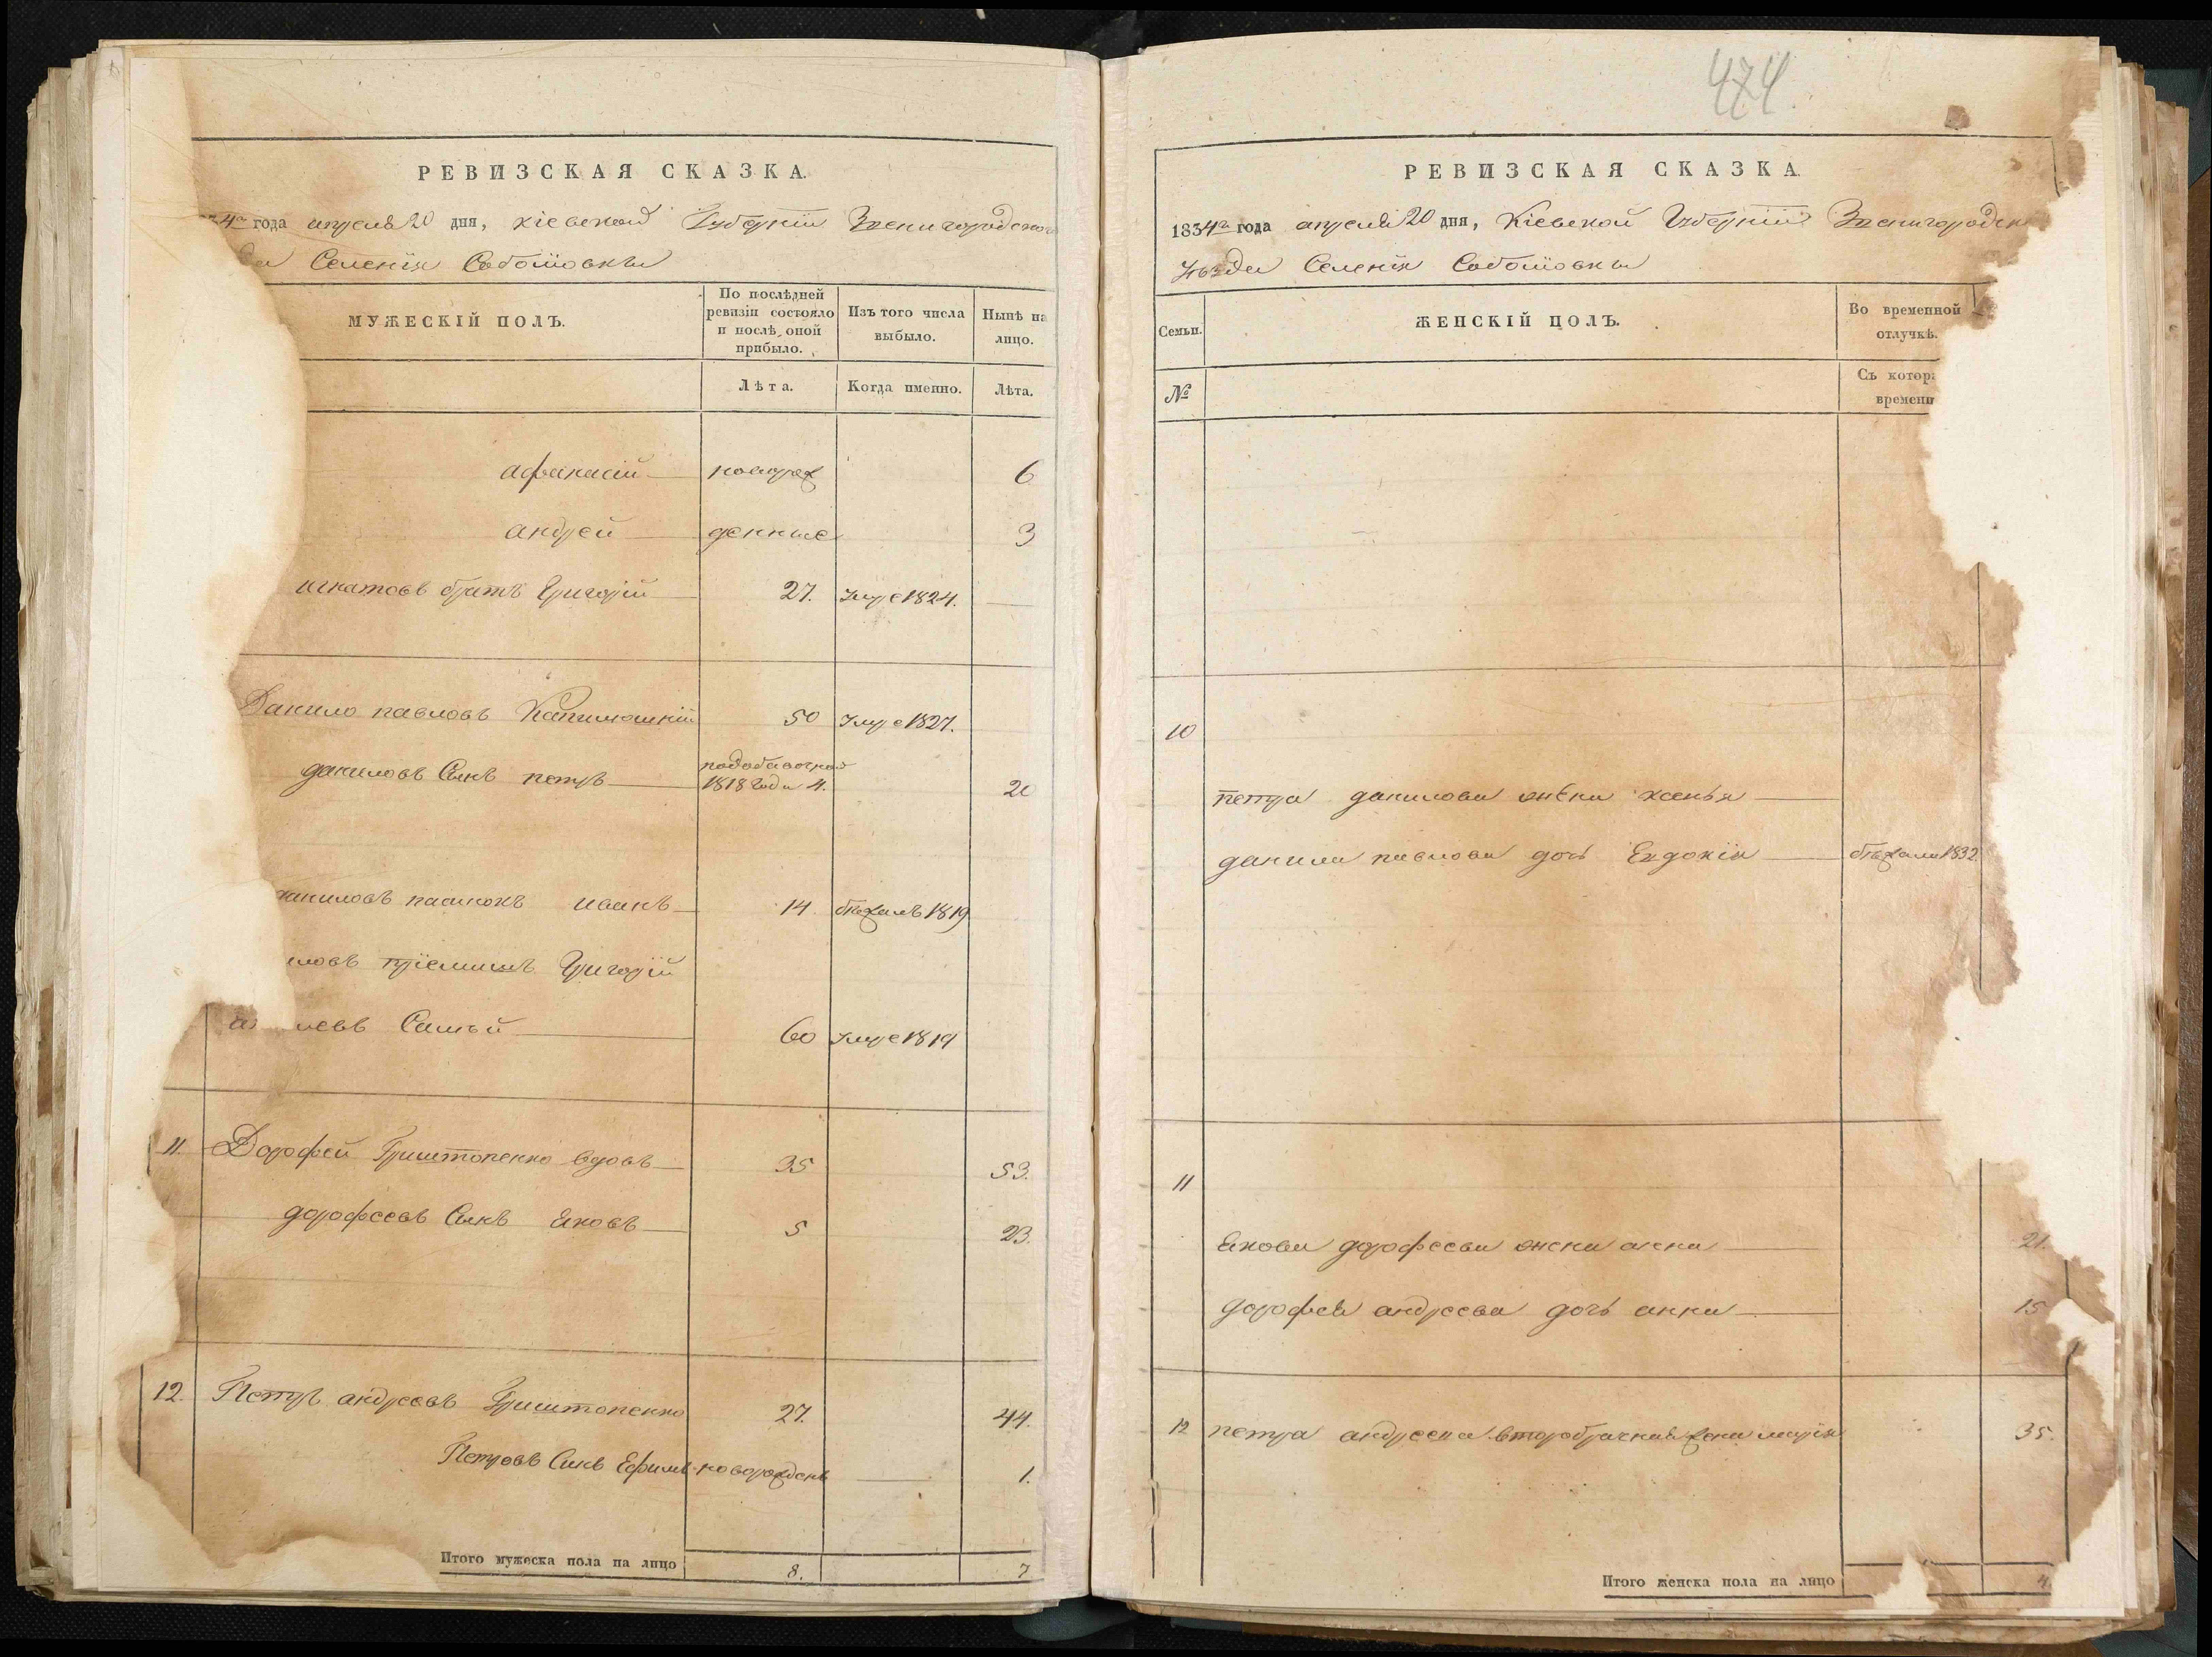 РЕВИЗСКАЯ СКАЗКА.
4го года апреля 20 дня, Кіевской Губерніи Звенигородского
Селенія Соболювки
МУЖЕСКІЙ ПОЛЪ.
По послѣдней ревизіи состояло и послѣ оной прибыло.
Изъ того числа выбыло.
Нынѣ на лицо.
Лѣта.
Когда именно.
Лѣта.
афанасій новорож 6
андрей денные 3
игнатовъ братъ Григорій 27. Умре 1824.
Данило павловъ 50 Умре 1827.
даниловъ Сынъ петръ
1818 года 4. 20
даниловъ пасынокъ иванъ 14 бежалъ 1819
пріемышъ Григорій
Самый 60 Умре 1819
11. Дорофей Гриштопенко вдовъ 35 53.
дорофеевъ Сынъ Яковъ 5 23.
12. Петръ андреевъ Гриштопенко 27. 44.
Петровъ Сынъ Ефимъ новорожденъ 1.
Итого мужеска пола на лицо 8. 7
474
РЕВИЗСКАЯ СКАЗКА.
1834го года апреля 20 дня, Кіевской Губерніи
Уѣзда Селенія Соболювки
Семьи.
ЖЕНСКІЙ ПОЛЪ.
Во временной отлучкѣ.
№
Съ котор
времени
10
петра данилова жена ксенья
данила павлова дочь Евдокія бежала 1832
11
Якова дорофеева жена анна 21.
дорофея андреева дочь анна 15
12 петра андреева второбрачная жена марія 35.
Итого женска пола на лицо 4.